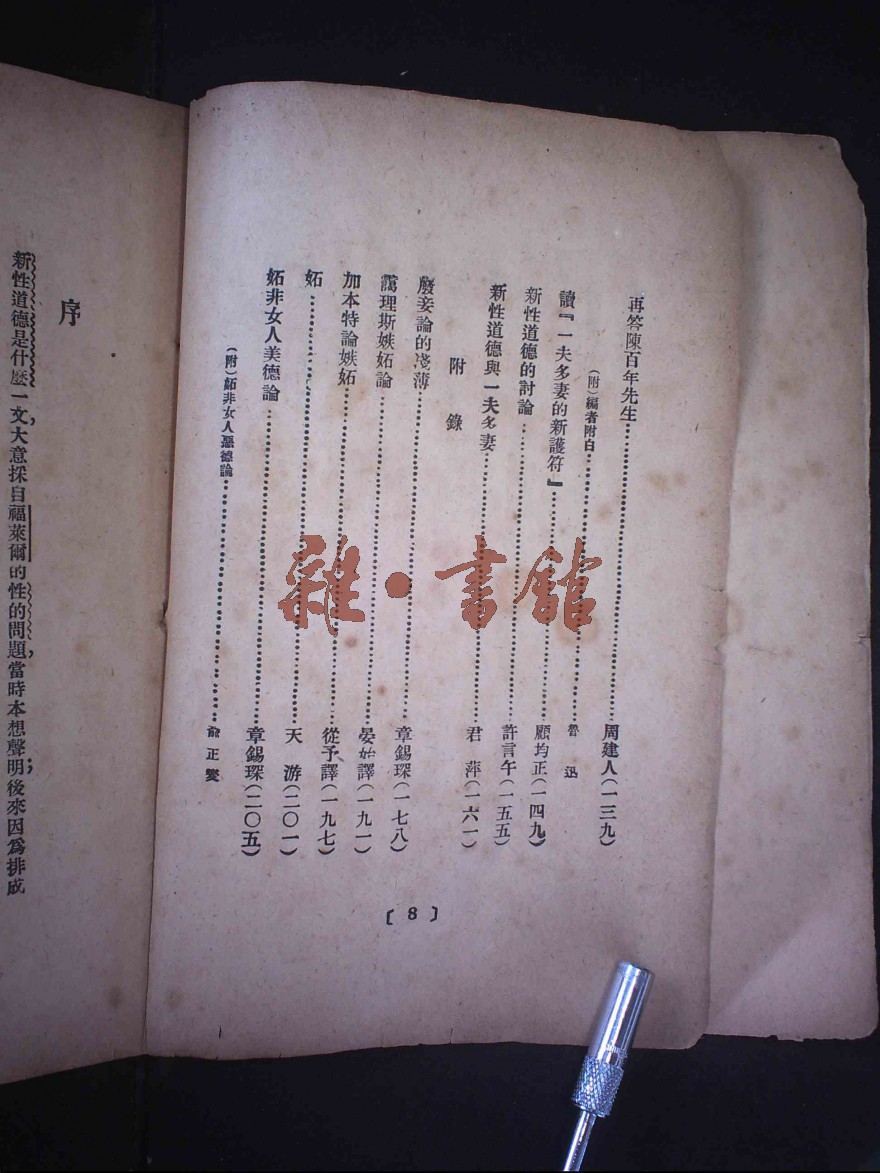 再答陳百年先生……周建人(一三九)
(附)編者附白……魯迅
讀『一夫多妻的新護符』……顧均正(一四九)
新性道德的討論……許言午(一五五)
新性道德與一夫多妻……君萍(一六一)
附錄
廢妾論的淺薄……章錫琛(一七八)
靄理斯嫉妬論……晏始譯(一九一)
加本特論嫉妬……從予譯(一九七)
妬……天游(二〇一)
妬非女人美德論……章錫琛(二〇五)
(附)妬非女人惡德論……俞正燮
〔8〕
序
新性道德是什麽一文,大意採自福萊爾的性的問題,當時本想聲明;後來因爲排成
雜·書館